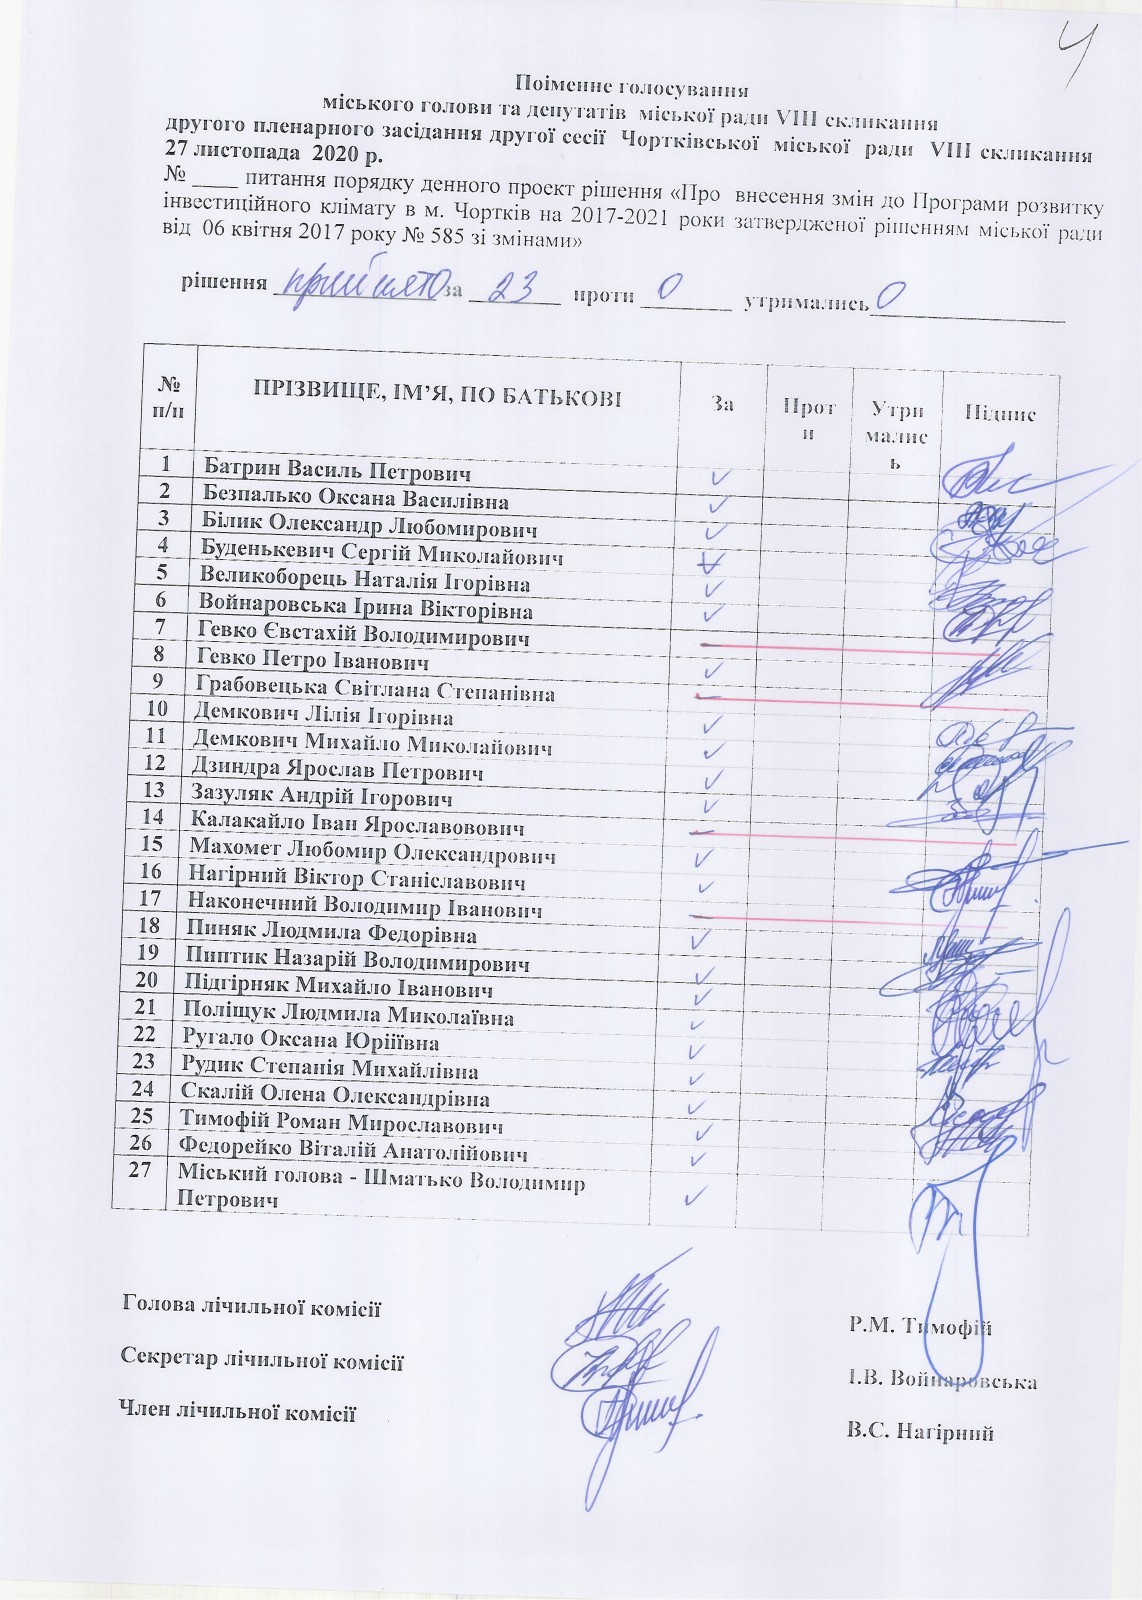 4
Поіменне голосування
міського голови та депутатів міської ради VIII скликання
другого пленарного засідання другої сесії Чортківської міської ради VIII скликання
27 листопада 2020 р.
№ ____ питання порядку денного проект рішення «Про внесення змін до Програми розвитку
інвестиційного клімату в м. Чортків на 2017-2021 роки затвердженої рішенням міської ради
від 06 квітня 2017 року № 585 зі змінами»
рішення прийнято за 23 проти 0 утримались 0
№ п/п ПРІЗВИЩЕ, ІМ’Я, ПО БАТЬКОВІ За Проти Утрималис ь Підпис
1 Батрин Василь Петрович ✓
2 Безпалько Оксана Василівна ✓
3 Білик Олександр Любомирович ✓
4 Буденькевич Сергій Миколайович ✓
5 Великоборець Наталія Ігорівна ✓
6 Войнаровська Ірина Вікторівна ✓
7 Гевко Євстахій Володимирович
8 Гевко Петро Іванович ✓
9 Грабовецька Світлана Степанівна
10 Демкович Лілія Ігорівна ✓
11 Демкович Михайло Миколайович ✓
12 Дзиндра Ярослав Петрович ✓
13 Зазуляк Андрій Ігорович ✓
14 Калакайло Іван Ярославовович
15 Махомет Любомир Олександрович ✓
16 Нагірний Віктор Станіславович ✓
17 Наконечний Володимир Іванович
18 Пиняк Людмила Федорівна ✓
19 Пиптик Назарій Володимирович ✓
20 Підгірняк Михайло Іванович ✓
21 Поліщук Людмила Миколаївна ✓
22 Ругало Оксана Юрііївна ✓
23 Рудик Степанія Михайлівна ✓
24 Скалій Олена Олександрівна ✓
25 Тимофій Роман Мирославович ✓
26 Федорейко Віталій Анатолійович ✓
27 Міський голова - Шматько Володимир
Петрович ✓
Голова лічильної комісії Р.М. Тимофій
Секретар лічильної комісії І.В. Войнаровська
Член лічильної комісії В.С. Нагірний